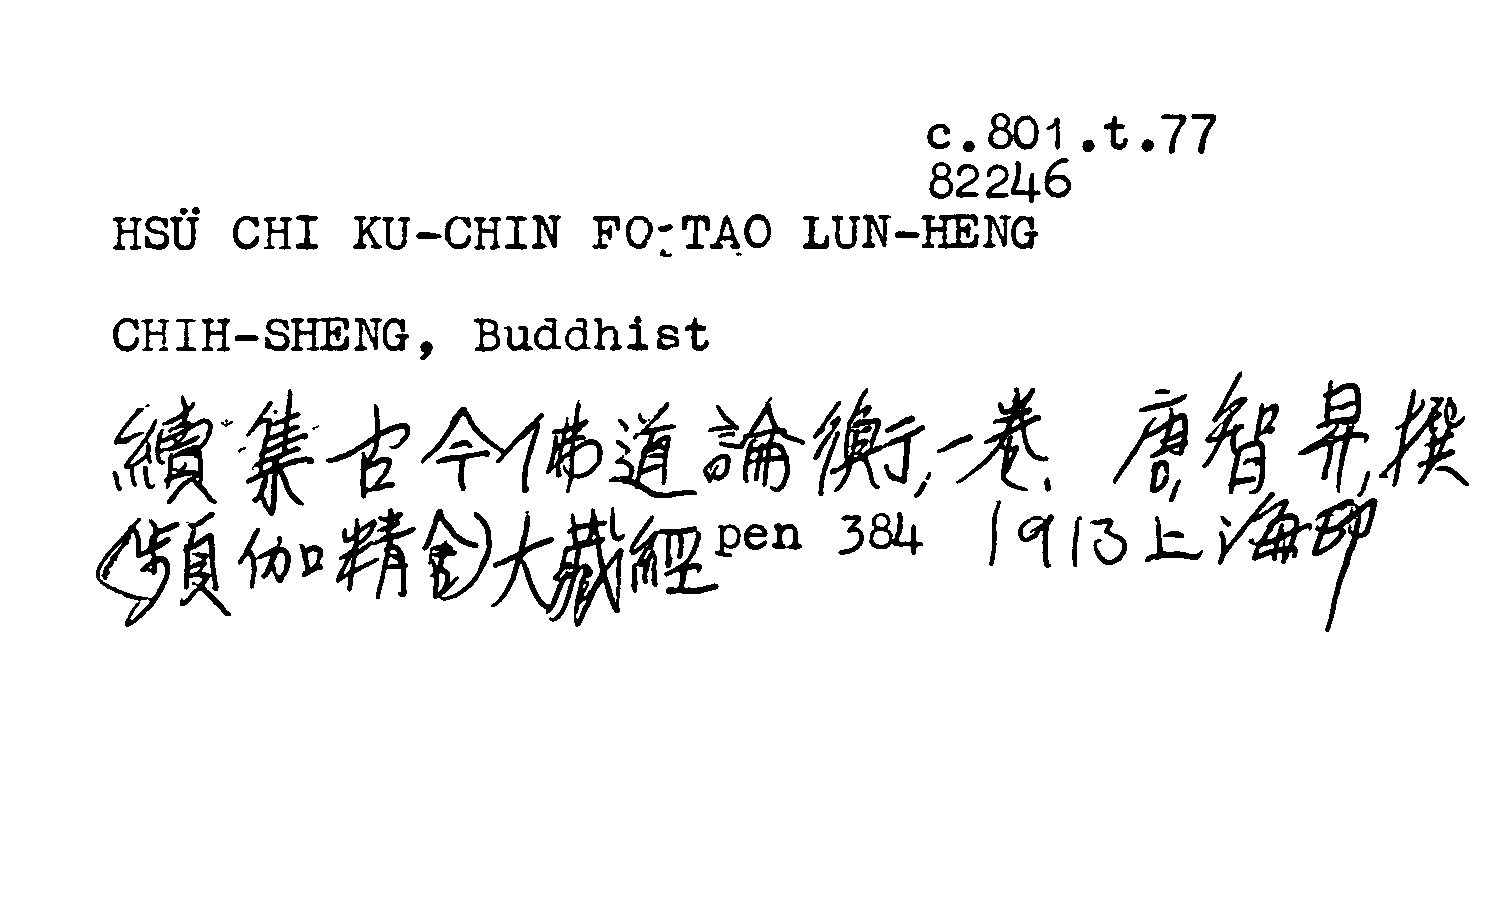 c.801.t.77
82246
HSÜ CHI KU-CHIN FO-TAO LUN-HENG
CHIH-SHENG, Buddhist
續集古今佛道論衡,一卷. 唐,智昇,撰
(頻伽精舍)大藏經pen 384 1913上海印